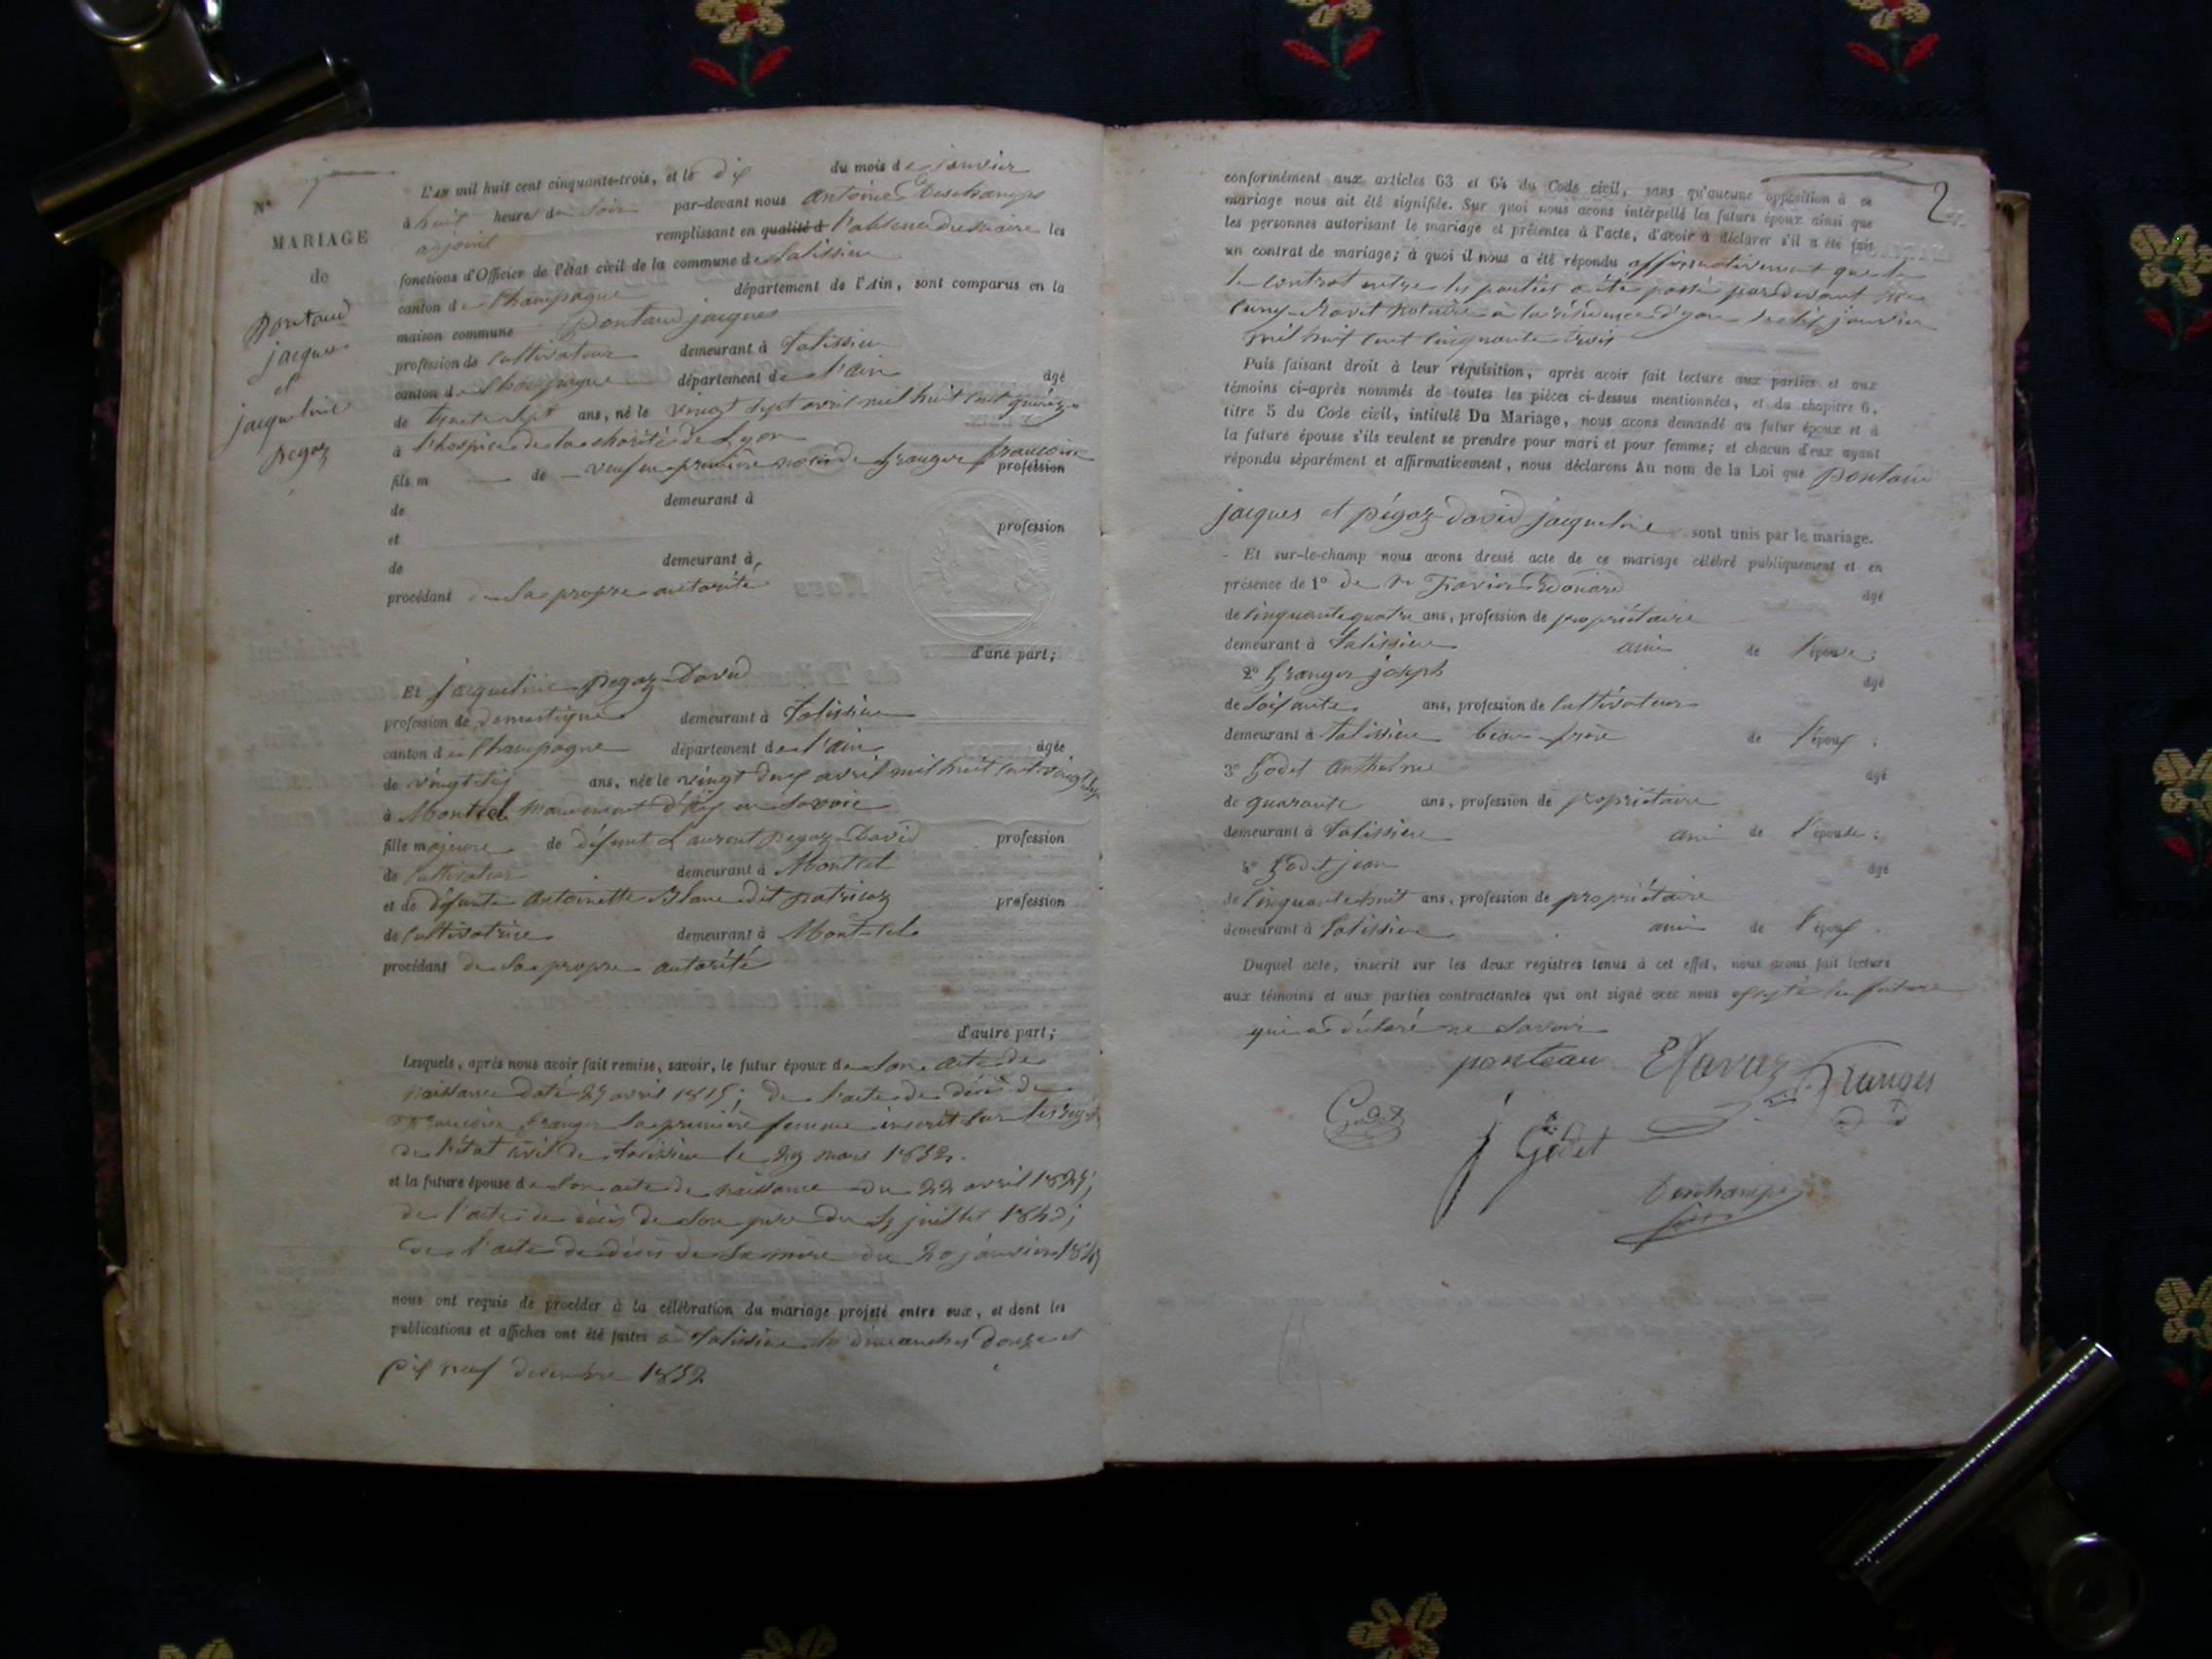 N° 1
MARIAGE
de
Pontaud
jacques
et
jacqueline
Pegoz
L'AN mil huit cent cinquante-trois, et le dix du mois de janvier
à huit heures du soir par-devant nous Antoine Deschamps
adjoint remplissant en qualité d l'absence du maire les
fonctions d'Officier de l'état civil de la commune de talissieu
canton de Champagne département de l'Ain, sont comparus en la
maison commune Pontaud jacques
profession de Cultivateur demeurant à talissieu
canton de Champagne département de l'ain âgé
de trente sept ans, né le vingt sept avril mil huit cent quinze
à l'hospice de la charité de Lyon
fils m de veuf en première noces de Granger françoise profession
de demeurant à
et profession
de demeurant à
procédant de sa propre autorité
d'une part;
Et jacqueline pegoz-David
profession de domestique demeurant à talissieu
canton de Champagne département de l'ain âgée
de vingt six ans, née le vingt deux avril mil huit cent vingt
à Montcel mandement d'aix en Savoie
fille majeure de défunt Laurent pegoz-David profession
de Cultivateur demeurant à Montcel
et de défunte Antoinette Blanc dit patricoz profession
de Cultivatrice demeurant à Mont-cel
procédant de sa propre autorité
d'autre part;
Lesquels, après nous avoir fait remise, savoir, le futur époux de Son acte de
naissance daté 27 avril 1815; de l'acte de décès de
françoise Granger sa première femme inscrit sur les
de l'état civil de talissieu le 29 mars 1852.
et la future épouse de Son acte de naissance du 22 avril
de l'acte de décès de Son père du juillet
de l'acte de décès de Sa mère du 20 janvier
nous ont requis de procéder à la célébration du mariage projeté entre eux, et dont les
publications et affiches ont été faites à talissieu les dimanches douze et
dix neuf décembre 1852
2
conformément aux articles 63 et 64 du Code civil, sans qu'aucune opposition à ce
mariage nous ait été signifiée. Sur quoi nous avons interpellé les futurs époux ainsi que
les personnes autorisant le mariage et présentes à l'acte, d'avoir à déclarer s'il a été fait
un contrat de mariage; à quoi il nous a été répondu affirmativement que
le contrat entre les parties a été passé pardevant
notaire à la résidence d' le dix janvier
mil huit cent cinquante trois
Puis faisant droit à leur réquisition, après avoir fait lecture aux parties et aux
témoins ci-après nommés de toutes les pièces ci-dessus mentionnées, et du chapitre 6,
titre 5 du Code civil, intitulé Du Mariage, nous avons demandé au futur époux et à
la future épouse s'ils veulent se prendre pour mari et pour femme; et chacun d'eux ayant
répondu séparément et affirmativement, nous déclarons Au nom de la Loi que Pontaud
jacques et pégoz-david jacqueline sont unis par le mariage.
Et sur-le-champ nous avons dressé acte de ce mariage célébré publiquement et en
présence de 1° de Mr Edouard âgé
de Cinquante quatre ans, profession de propriétaire
demeurant à talissieu ami de l'épouse;
2° Granger joseph âgé
de soixante ans, profession de Cultivateur
demeurant à talissieu beau-frère de l'époux;
3° Godet Anthelme âgé
de quarante ans, profession de propriétaire
demeurant à talissieu ami de l'épouse;
4° Godet jean âgé
de Cinquante huit ans, profession de propriétaire
demeurant à talissieu ami de l'époux.
Duquel acte, inscrit sur les deux registres tenus à cet effet, nous avons fait lecture
aux témoins et aux parties contractantes qui ont signé avec nous excepté la future
qui a déclaré ne savoir
ponteau
Granger
Godet
Godet
Deschamps